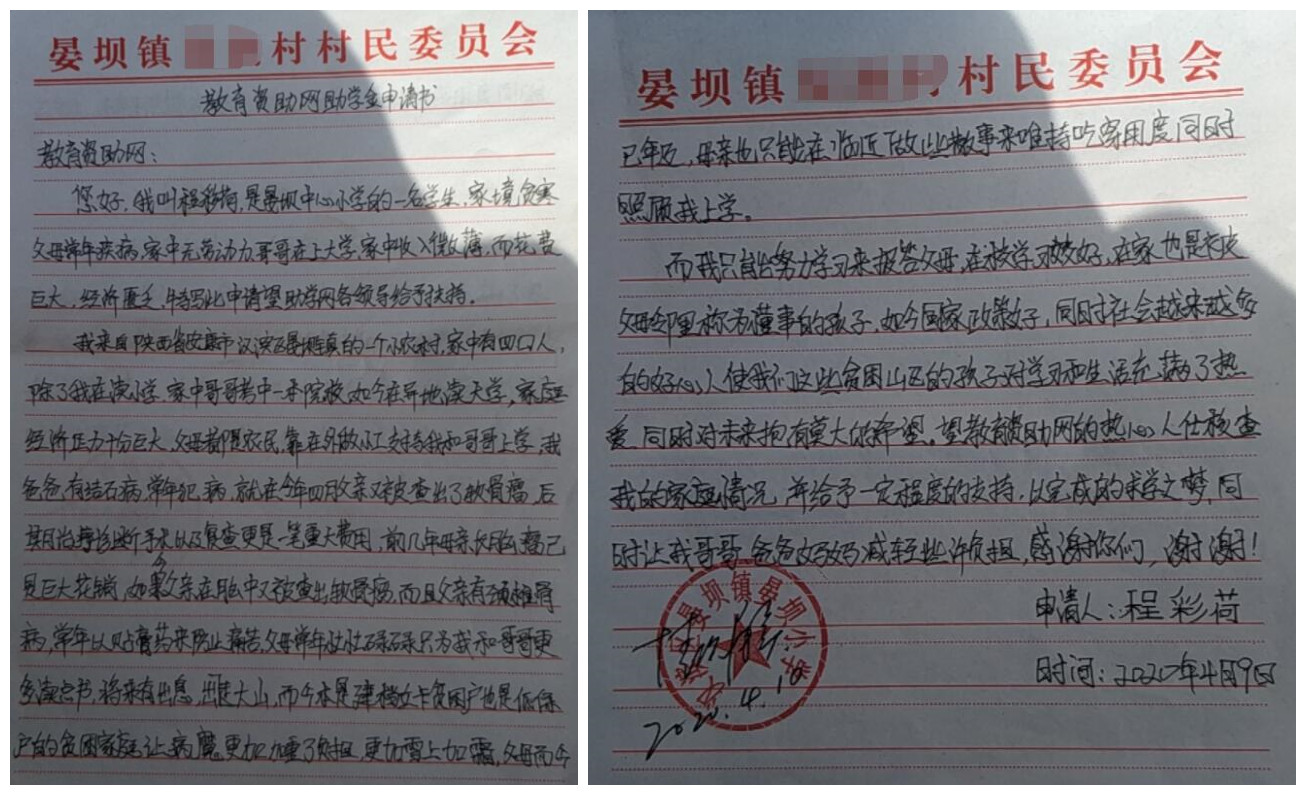 晏坝镇 村村民委员会
教育资助网助学金申请书
教育资助网：
您好，我叫程彩荷，是晏坝中心小学的一名学生，家境贫寒
父母常年疾病，家中无劳动力，哥哥在上大学，家中收入微薄，而花费
巨大，经济匮乏，特写此申请望助学网各领导给予扶持。
我来自陕西省安康市汉滨区晏坝镇的一个小农村，家中有四口人，
除了我在读小学，家中哥哥考中一本院校，如今在异地读大学，家庭
经济压力十分巨大，父母都是农民，靠在外做小工支持我和哥哥上学，我
爸爸，有结石病，常年犯病，就在今年四月父亲又被查出了软骨瘤，后
期治疗诊断手术以及复查更是一笔重大费用，前几年母亲 瘤已
是巨大花销，如今父亲在 中又被查出软骨瘤，而且父亲有颈椎骨
病，常年以贴膏药来防止痛苦，父母常年忙忙碌碌只为我和哥哥更
多读点书，将来有出息，走出大山，而今本是建档立卡贫困户也是低保
户的贫困家庭，让病魔更加加重了负担，更加雪上加霜，父母而今
晏坝镇 村村民委员会
已年迈，母亲也只能在临近做些散事来维持吃穿用度同时
照顾我上学。
而我只能努力学习来报答父母，在校学习较好，在家也是老皮
父母邻里称为懂事的孩子，如今国家政策好，同时社会越来越多
的好心人使我们这些贫困山区的孩子对学习和生活充满了热
爱，同时对未来抱有莫大的希望，望教育资助网的热心人仕核查
我的家庭情况，并给予一定程度的扶持，以完成的求学之梦，同
时让我哥哥，爸爸妈妈减轻些许负担，感谢你们，谢谢！
申请人：程彩荷
时间：2020年4月9日
晏坝镇晏坝小学
2020.4.10